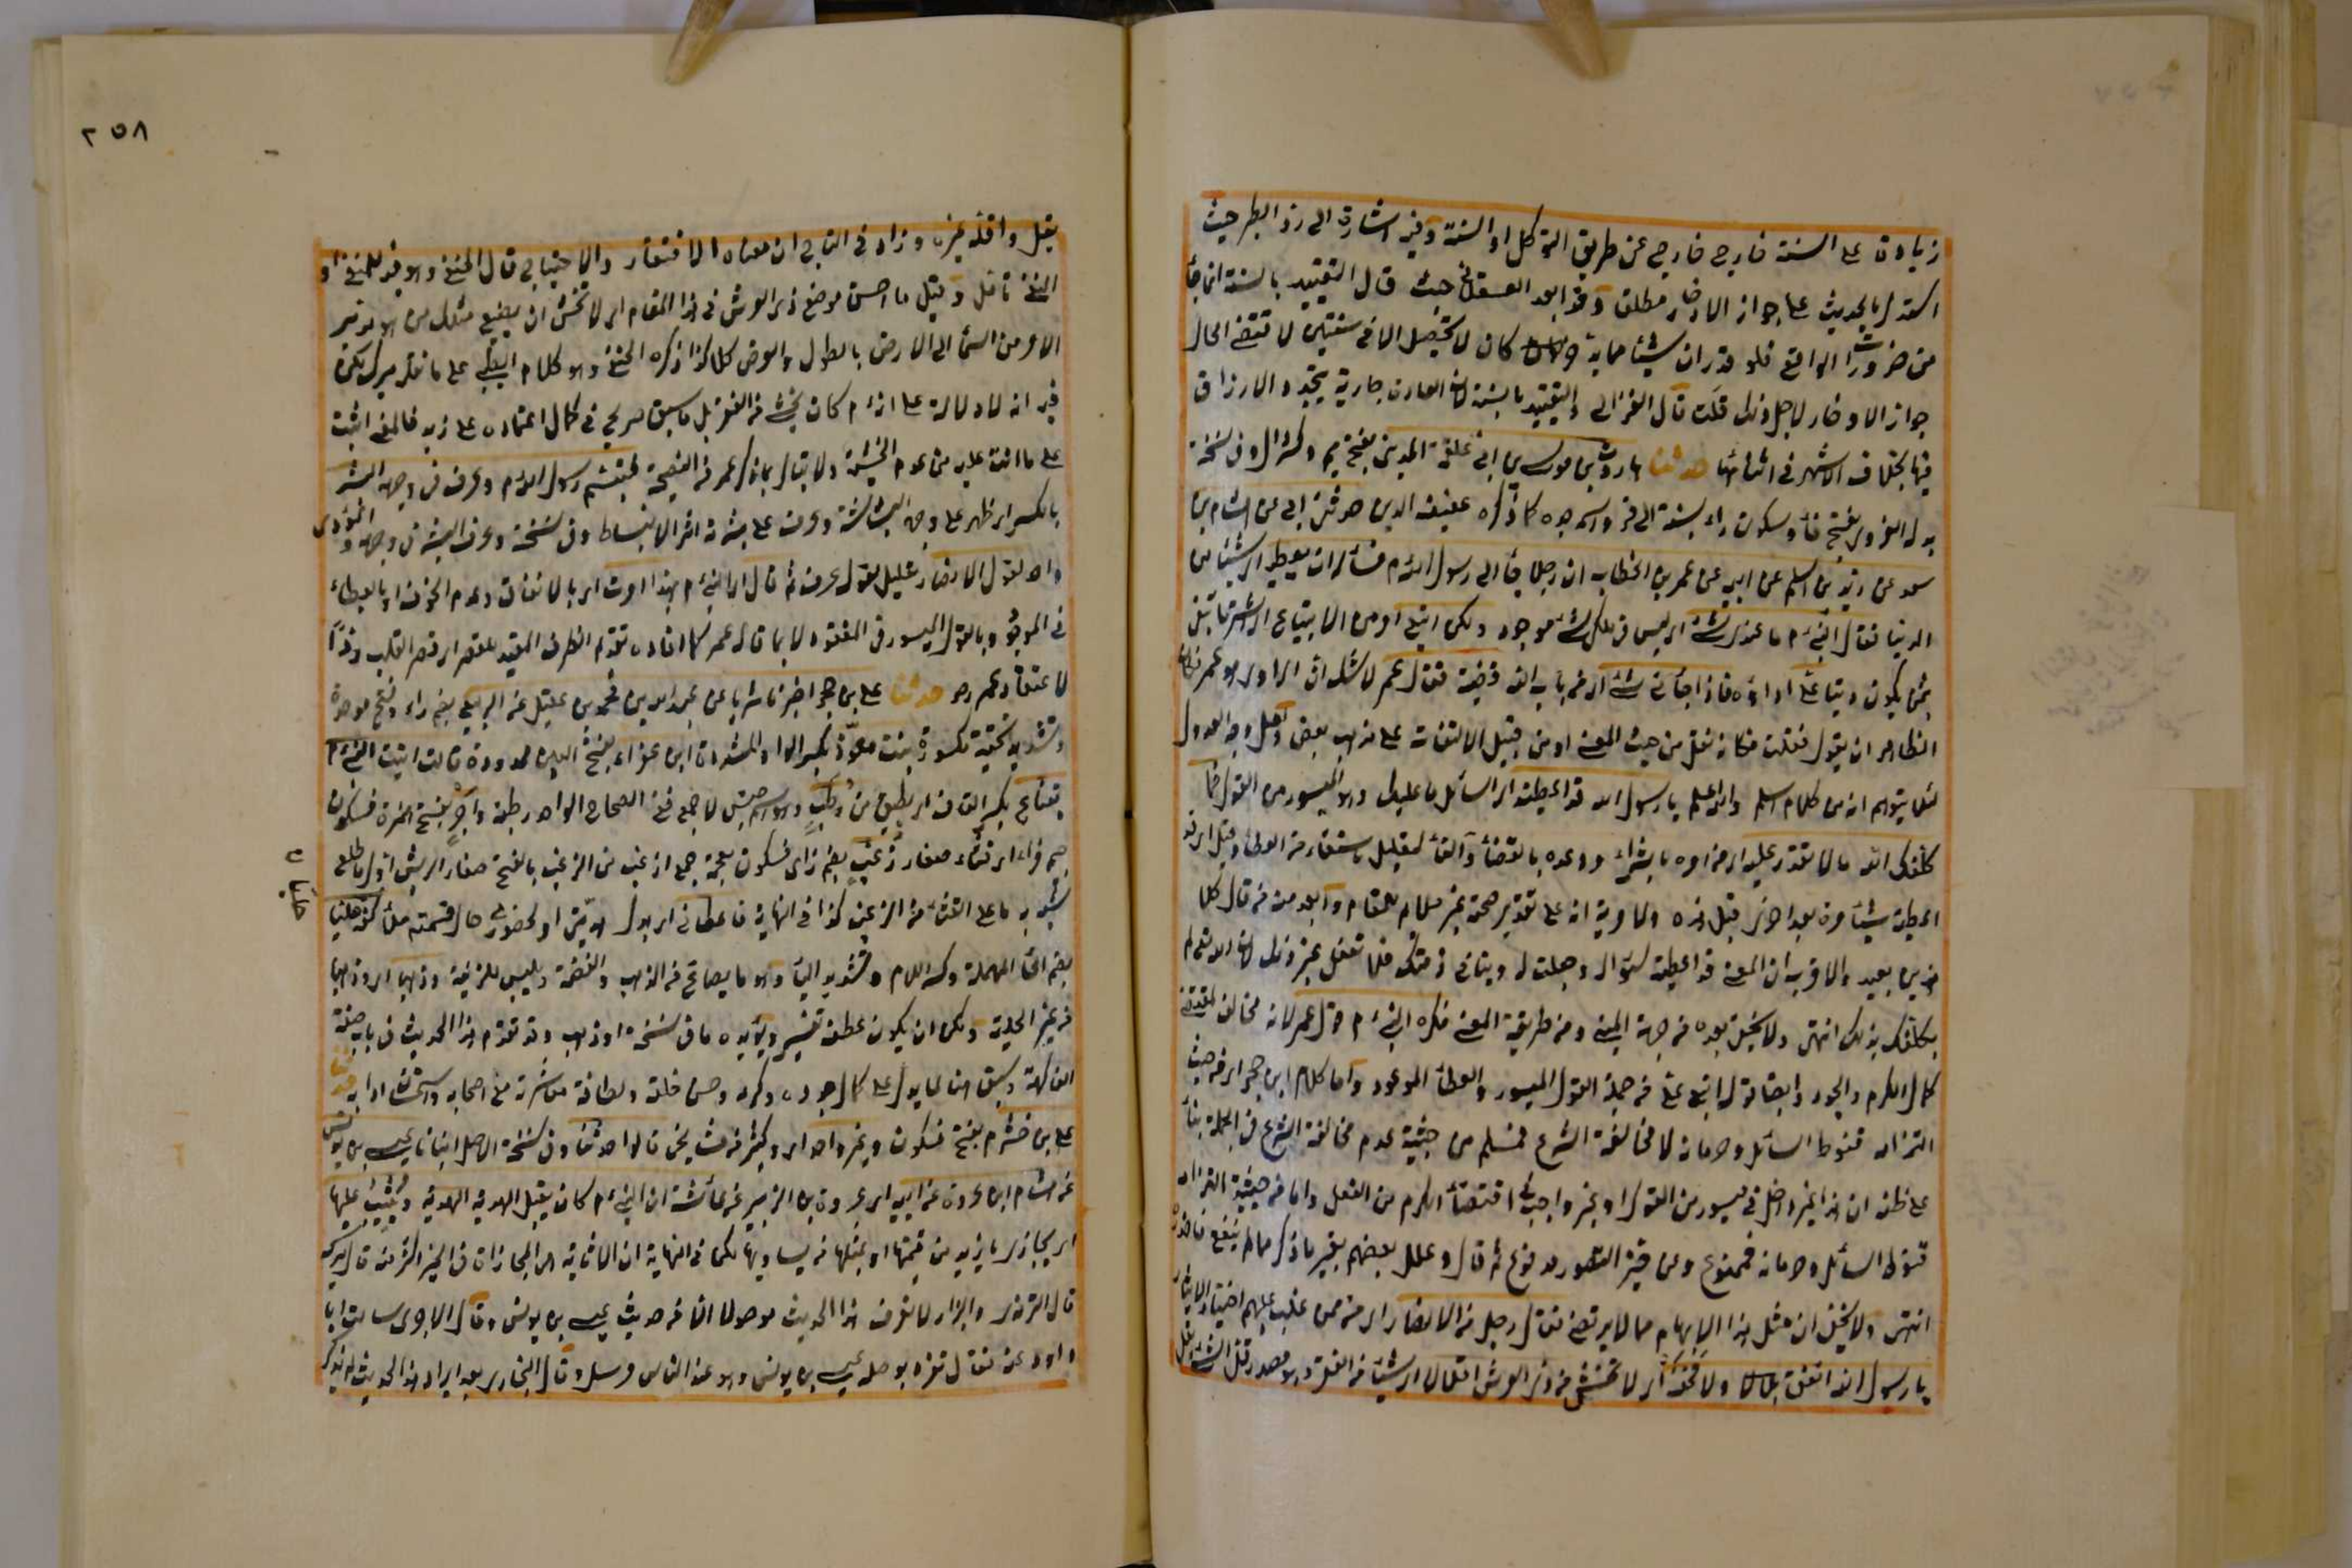 زيادة على السنة خارج خارج عن طريق التوكل او السنة وفيه اشارة الى رد الطبري حيث
استدل بالحديث على جواز الادخار مطلقا وهذا بعد العسقلاني حيث قال التقييد بالسنة انما جاء
من ضرورة الواقع فلو قدر ان شيئا مما يدخر كان لا يحصل الا في سنتين لا تقتضى الحال
جواز الادخار لاجل ذلك قلت قال الغزالي والتقييد بالسنة لان العادة جارية بتجدد الارزاق
فيها بخلاف الاشهر في اثنائها حدثنا هارون بن موسى بن ابي علقمة المديني بفتح ميم وكسر دال وفي نسخة
بدله الفروى بفتح فاء وسكون راء نسبة الى فروة اسم جده كما ذكره عفيف الدين حدثني ابي عن هشام بن
سعد عن زيد بن اسلم عن ابيه عن عمر بن الخطاب ان رجلا جاء الى رسول الله م فسأله ان يعطيه اي شيئا من
الدنيا فقال النبي م ما عندي شئ اي ليس في ملكي شئ موجود ولكن ابتع امر من الابتياع اي اشتر ما تبتغى
بثمن يكون دينا على اداؤه فاذا جاءني شئ اي من باب الله قضيته فقال عمر لا شك ان الراوي هو عمر فكان
الظاهر ان يقول فقلت فكأنه نقل من حيث المعنى او من قبيل الالتفات على مذهب بعض ولعل وجه العدول
لئلا يتوهم انه من كلام اسلم والله اعلم يا رسول الله قد اعطيته اي السائل ما عليك وهو الميسور من القول فما
كلفك الله مالا تقدر عليه اي من امره بالشراء ووعده بالقضاء والفاء لتعليل يستفاد من العطاء وقيل اي قد
اعطيته شيئا مرة بعد اخرى قبل هذه ولا مرية انه على تقدير صحته غير ملايم للمقام وابعد منه من قال كلا
هذين بعيد والاقرب ان المعنى قد اعطيته سؤاله وجعلت له دينا في ذمتك فلا تفعل غير ذلك لان الله تع لم
يكلفك بذلك انتهى ولا يخفى بعده من جهة المبنى ومن طريقة المعنى فكره النبي م قول عمر لانه مخالف لمقتضى
كمال الكرم والجود وايضا قوله ابتع على من جملة القول الميسور والعطاء الموعود واما كلام ابن حجر اي من حيث
التزامه قنوط السائل وحرمانه لا مخالفة الشرع فمسلم من حيثية عدم مخالفة الشرع في الجملة بناء
على ظنه ان هذا غير داخل في ميسور من القول او غير واجب اقتضاء الكرم من الفعل واما من حيثية التزام
قنوط السائل وحرمانه فممنوع وعن حيز التصور مدفوع ثم قال وعلل بعضهم بغير ما ذكر مما لم ينفع فاحذره
انتهى ولا يخفى ان مثل هذا الابهام مما لا يرتضى فقال رجل من الانصار اي من ممن غلب عليهم اختيار الايثار
يا رسول الله انفق بلالا ولا تخف اي لا تخش من ذي العرش اقلالا اي شيئا من القلة وهو مصدر قل الشئ يقل
٢٥٨
يقل واقله غيره وزاد في التاج ان معناه الافتقار والاحتياج قال الحنفي وهو قيد للمنفي او
النفي تأمل وقيل ما احسن موضع ذى العرش في هذا المقام اي لا تخش ان يضيع مثلك من هو مدبر
الامر من السماء الى الارض بالطول والعرض كلا كذا ذكره الحنفي وهو كلام الطيبي على ما نقله ميرك لكن
فيه انه لا دلالة على انه م كان يخشى من الفقر بل ما سبق صريح في كمال اعتماده على ربه فالمعنى اثبت
على ما انت عليه من عدم الخشية ولا تبال بما ذكره عمر من النصيحة فتبسم رسول الله م وعرف في وجهه البشر
بالكسر اي ظهر على وجهه البشاشة وعرف على بشرته اثر الانبساط وفي نسخة وعرف البشر في وجهه والمؤدى
واحد لقول الانصاري تعليل لقوله عرف ثم قال اي النبي م بهذا امرت اي بالانفاق وعدم الخوف او بالعطاء
في الموجود وبالقول الميسور في المفقود لا بما قاله عمر كما افاده تقدم الظرف المفيد للقصر اي قصر القلب ردا
لاعتقاد عمر رض حدثنا على بن حجر اخبرنا شريك عن عبد الله بن محمد بن عقيل عن الربيع بضم راء وفتح موحدة
وتشديد تحتية مكسورة بنت معوذ بكسر الواو المشددة ابن عفراء بفتح العين ممدودة قالت اتيت النبي م
بقناع بكسر القاف اي بطبق من رطب وهو اسم جنس لا جمع ففي الصحاح الواحد رطبة واجر بفتح الهمزة فسكون
جيم فراء اي قثاء صغار زغب بضم زاى فسكون معجمة جمع ازغب من الزغب بالفتح صغار الريش اول ما طلع
شبه به ما على القثاء من الزغب كذا في النهاية فاعطاني اي بدل هديتى او لحضورى حال قسمته ملأ كفه حليا
بضم الحاء المهملة وكسر اللام وتشديد الياء وهو ما يصاغ من الذهب والفضة ويلبس للزينة وذهبا اي وذهبا
من غير الحلية ولكن ان يكون عطف تفسير ويؤيده ما في نسخة او ذهبا وقد تقدم هذا الحديث في باب صفة
الفاكهة وسبق هنا لما يدل على كمال جوده وكرمه وحسن خلقه ولطافة معاشرته مع اصحابه واستحقاق ادابه حدثنا
على بن خشرم بفتح فسكون وغير واحد اي وكثير من مشايخي قالوا حدثنا وفي نسخة الاصل انبانا عيسى بن يونس
عن هشام ابن عروة عن ابيه اي عروة بن الزبير عن عائشة ان النبي م كان يقبل الهدية ويثيب عليها
اي يجازي بازيد من قيمتها او بمثلها فيساويها كما في النهاية ان الاثابة هو المجازاة في الخير اكثر منه قال ميرك
قال الترمذي والبزار لا نعرف هذا الحديث موصولا الا من حديث عيسى بن يونس وقال الاجري سالت ابا
داود عنه فقال تفرد بوصله عيسى بن يونس وهو عند الناس مرسل وقال البخاري بعد ايراد هذا الحديث لم يذكر